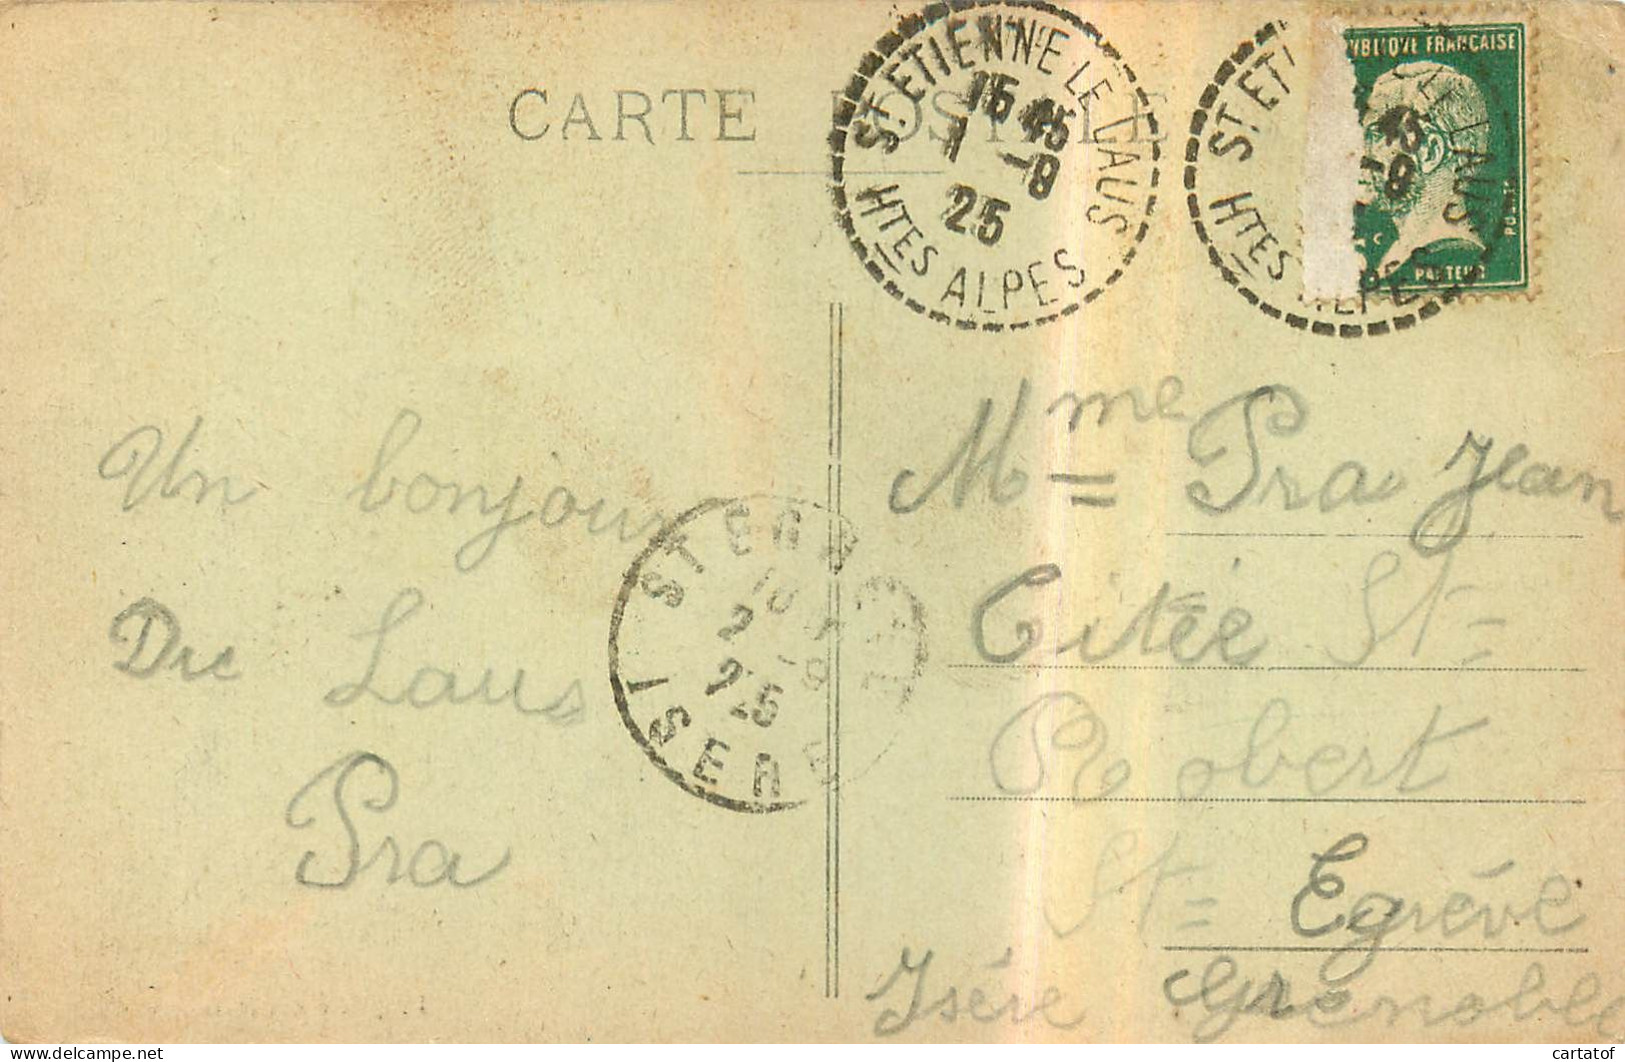 CARTE POSTALE
ST ETIENNE LE LAUS
15 45
1 -9
25
HTES ALPES
ST ETI LE LAUS
45
-9
HTES ALPES
UBLIQUE FRANÇAISE
C
PASTEUR
Un bonjour
Du Laus
Pra
ST EGREVE
10
2 -9
25
ISERE
Mme Pra Jean
Citée St=
Robert
St= Egréve
Isére Grenoble
cartatof